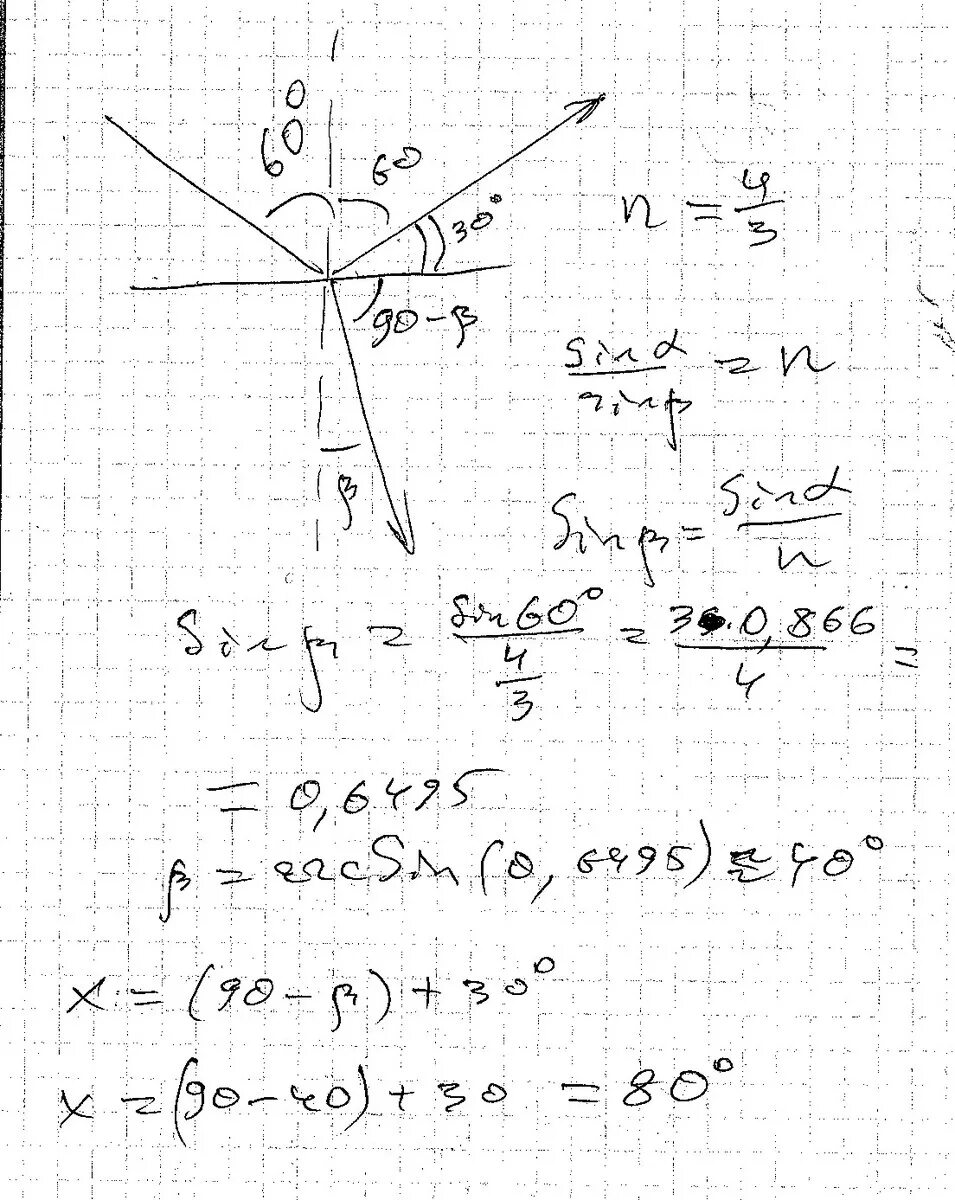 60°
60
30°
n = 4/3
90-β
sinα/sinβ = n
β
sinβ = sinα/n
sinβ = sin60°/(4/3) = 3·0,866/4 =
= 0,6495
β = arcsin(0,6495) ≈ 40°
x = (90-β) + 30°
x = (90-40) + 30 = 80°